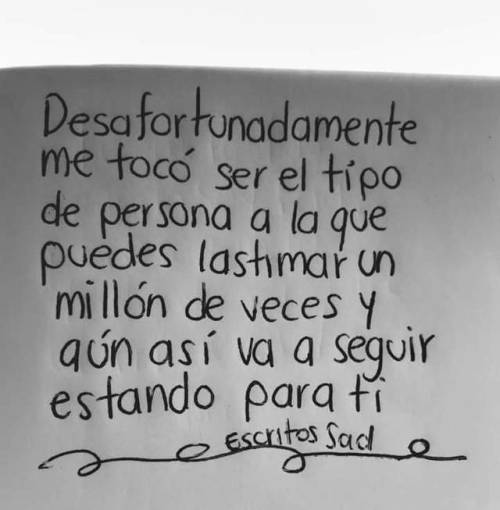 Desafortunadamente
me tocó ser el tipo
de persona a la que
puedes lastimar un
millón de veces y
aún así va a seguir
estando para ti
Escritos Sad